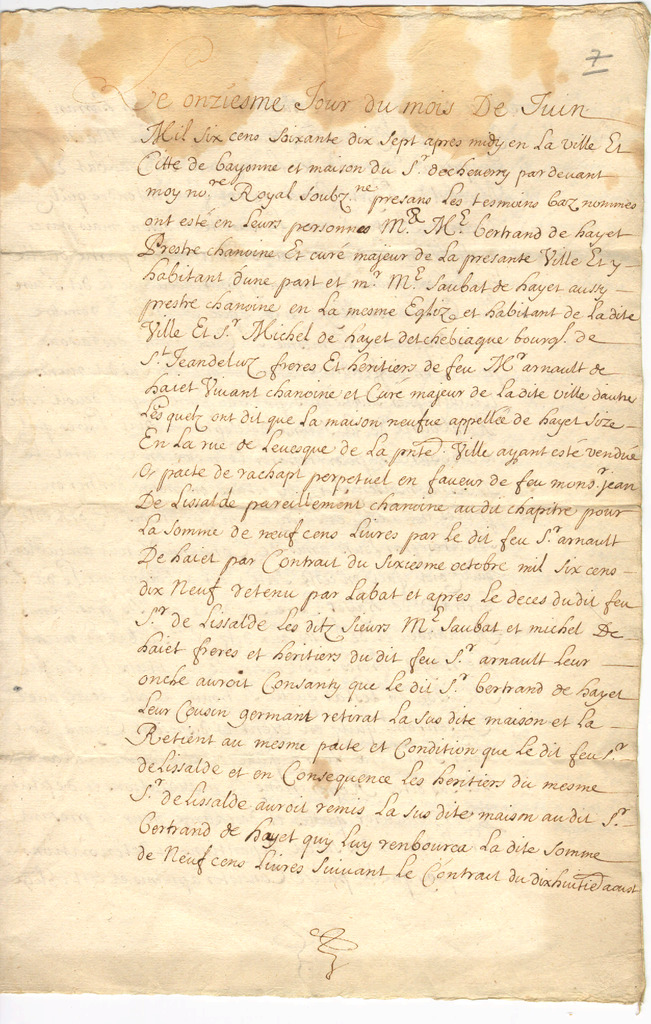 7
Le onziesme Jour du mois De Juin
Mil six cens soixante dix sept apres midy en La ville Et
Citté de bayonne et maison du Sr. decheverry par devant
moy nore. Royal soubzne. presans Les tesmoins baz nommes
ont esté en Leurs personnes Mr. Me. bertrand de hayet
Prestre chanoine Et curé majeur de La presante Ville Et y
habitant d'une part et mr. Me. Saubat de hayet aussy
prestre chanoine en La mesme Eglize et habitant de La dite
Ville Et Sr. Michel de hayet detchebiaque bourgs. de
St. Jeandeluz freres Et heritiers de feu Mr arnault de
haiet Vivant chanoine et Curé majeur de La dite ville d'autre
Lesquelz ont dit que La maison neufue appellée de hayet size
En La rue de Levesque de La pnte. Ville ayant esté vendue
a pacte de rachapt perpetuel en faveur de feu monsr. jean
De Lissalde pareillement chanoine au dit chapitre pour
La somme de neuf cens Livres par le dit feu Sr. arnault
De haiet par Contrait du sixiesme octobre mil six cens
dix Neuf retenu par Labat et apres Le deces dudit feu
Sr. de Lissalde Les ditz sieurs Me. Saubat et michel De
haiet freres et heritiers du dit feu Sr. arnault Leur
oncle auroit Consanty que Le dit Sr. bertrand de hayet
Leur Cousin germant retirat La sus dite maison et La
Retient au mesme pacte et Condition que Le dit feu Sr.
de Lissalde et en Consequence Les heritiers du mesme
Sr. de Lissalde auroit remis La sus dite maison au dit Sr.
bertrand de hayet quy Luy renbourca La dite somme
de Neuf cens Livres suivant Le Contrait du dixhuitie. aoust